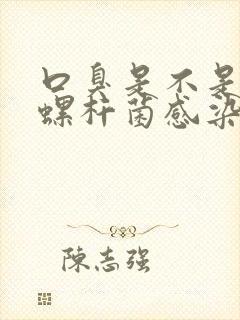 口臭是不是
螺杆菌感染
陈志强